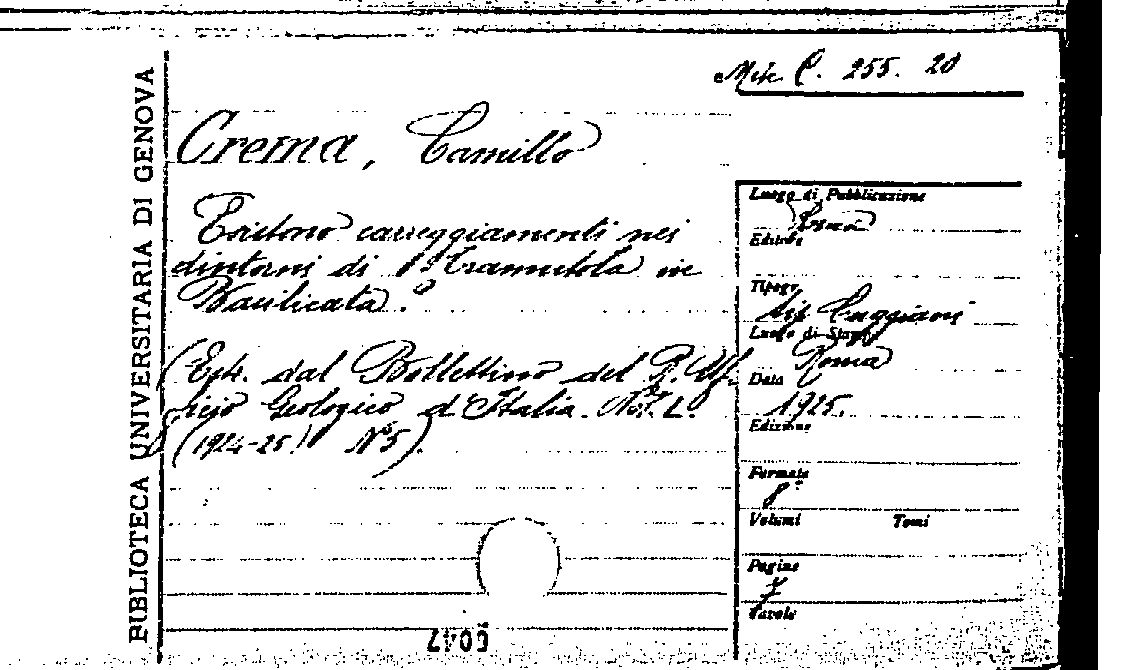 Misc. C. 255. 20
BIBLIOTECA UNIVERSITARIA DI GENOVA
Crema, Camillo
Esistono carreggiamenti nei
dintorni di Tramutola in
Basilicata?
(Estr. dal Bollettino del R. Uf-
ficio Geologico d'Italia. Vol. L.
(1924-25) N° 5).
Luogo di Pubblicazione
Roma
Editore
Tipogr.
Tip. Cuggiani
Luogo di Stampa
Roma
Data
1925.
Edizione
Formato
8°
Volumi Tomi
Pagine
7
Tavole
6047